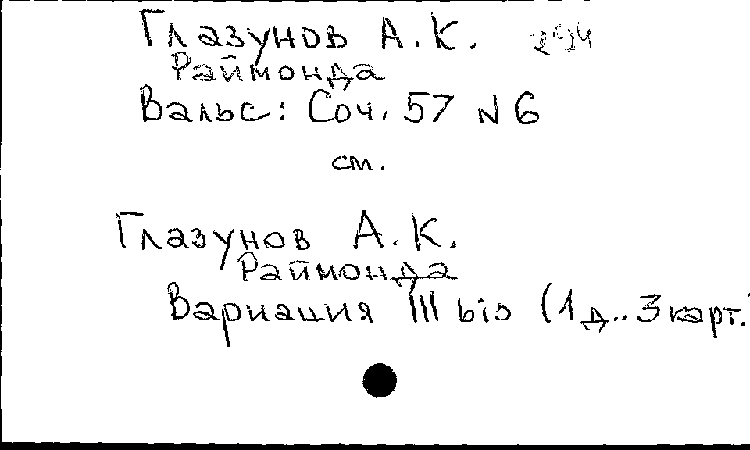 Глазунов А.К.
Раймонда
Вальс: Соч. 57 N 6
см.
Глазунов А.К.
Раймонда
Вариация III bis (1 д.. 3 карт.